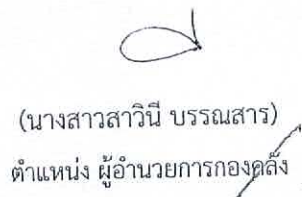 (นางสาวสาวินี บรรณสาร)
ตำแหน่ง ผู้อำนวยการกองคลัง